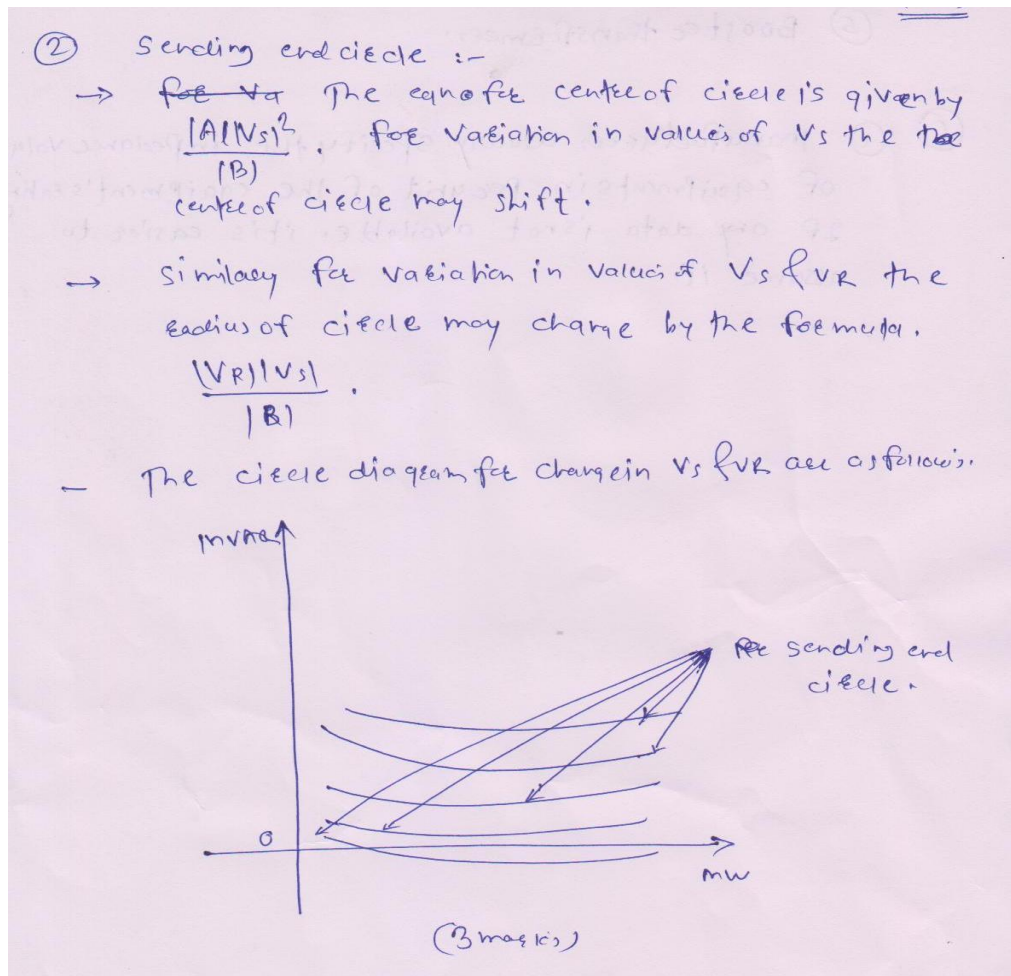 ② Sending end circle :-
→ The eqn for centre of circle is given by
|A||Vs|² / |B| . for variation in values of Vs the
centre of circle may shift.
→ Similarly for variation in values of Vs & VR the
radius of circle may change by the formula.
|VR||Vs| / |B| .
- The circle diagram for change in Vs & VR are as follows.
MVAR
Sending end
circle.
0
MW
(3 marks)